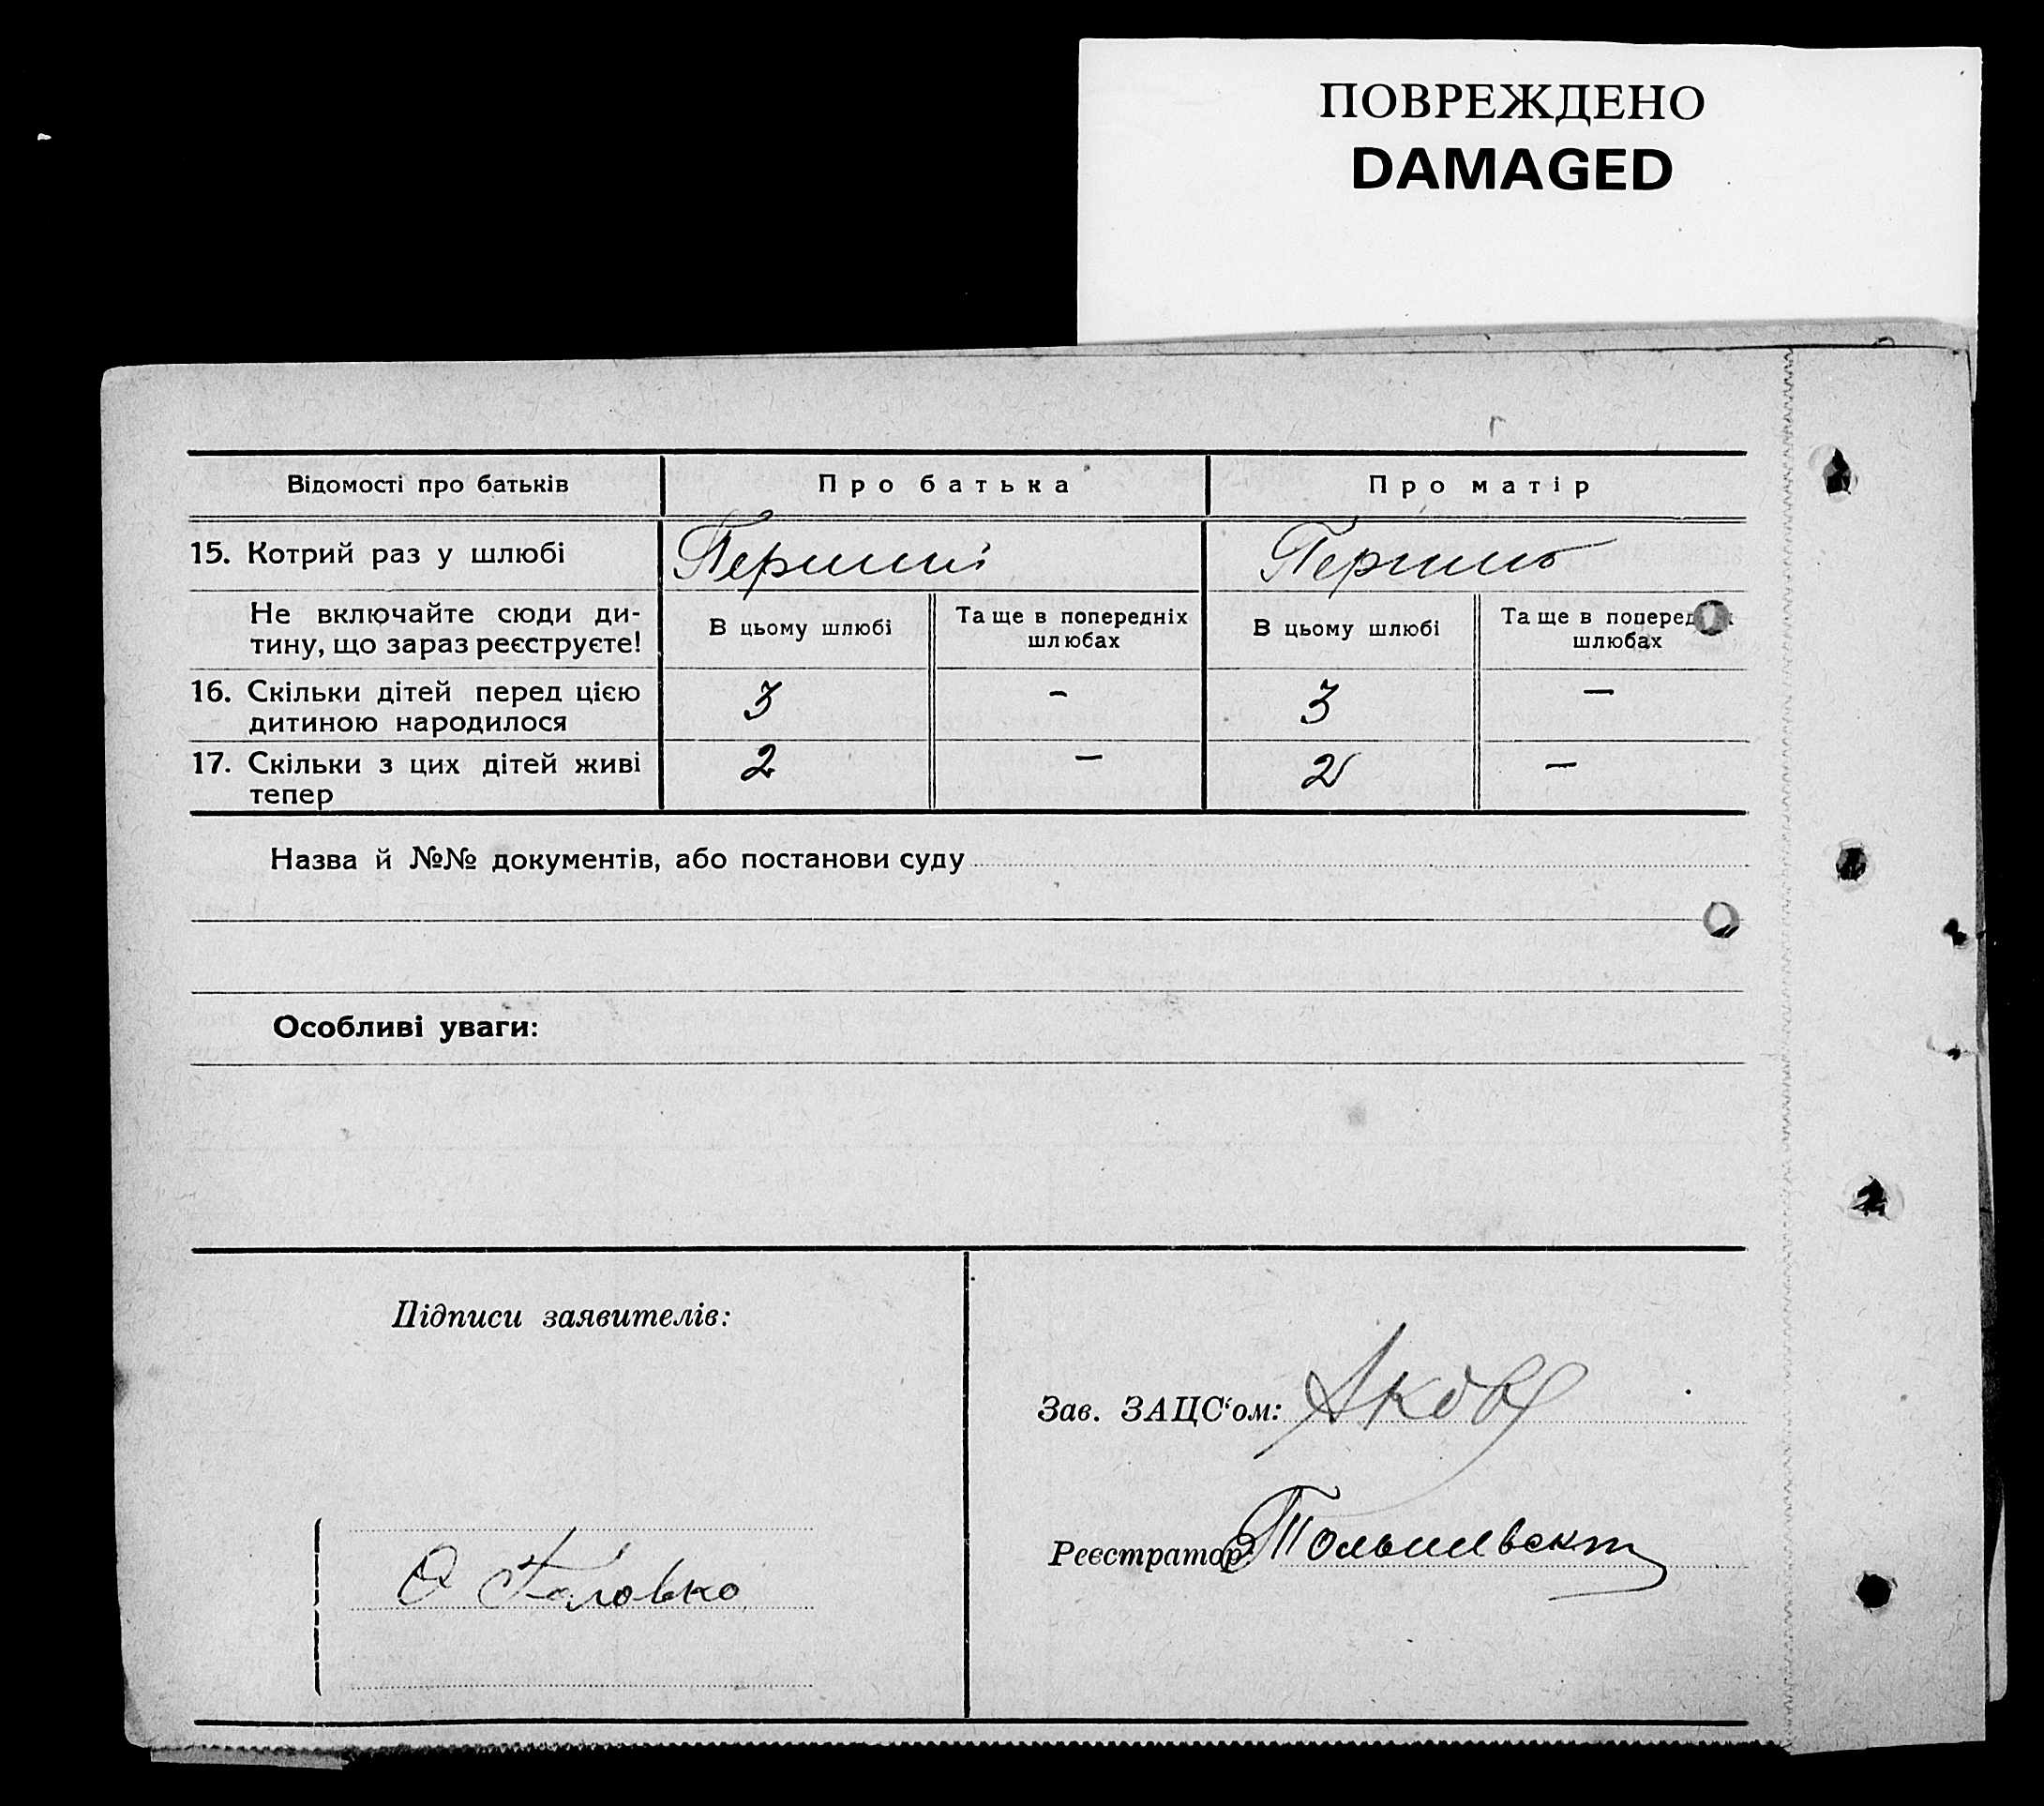 ПОВРЕЖДЕНО
DAMAGED
Відомості про батьків
Про батька
Про матір
15. Котрий раз у шлюбі
Перший
Не включайте сюди ди-
тину, що зараз реєструєте!
В цьому шлюбі
Та ще в попередніх
шлюбах
В цьому шлюбі
Та ще в поперед
шлюбах
16. Скільки дітей перед цією
дитиною народилося
3
–
3
–
17. Скільки з цих дітей живі
тепер
2
–
2
–
Назва й №№ документів, або постанови суду
Особливі уваги:
Підписи заявителів:
О Головко
Зав. ЗАЦС‘ом:
Реєстратор: